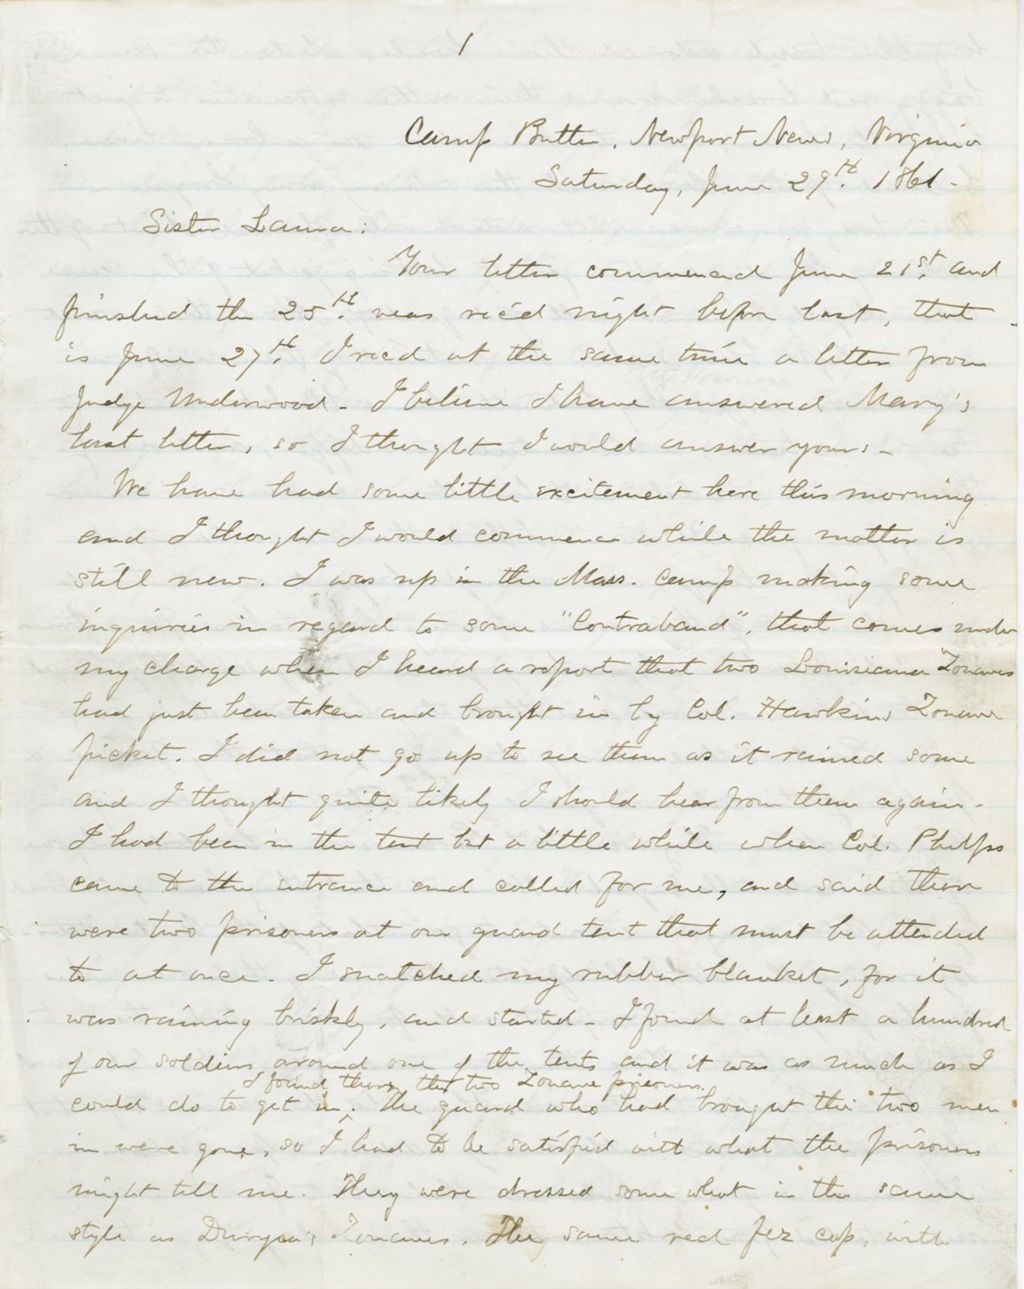 1
Camp Butler, Newport News, Virginia
Saturday, June 29th. 1861.
Sister Laura:
Your letter commenced June 21st. and
finished the 25th. was rec'd night before last, that
is June 27th. I rec'd at the same time a letter from
Judge Underwood - I believe I have answered Mary's
last letter, so I thought I would answer yours -
We have had some little excitement here this morning
and I thought I would commence while the matter is
still new. I was up in the Mass. camp making some
inquiries in regard to some "Contraband", that comes under
my charge when I heard a report that two Louisiana Zouaves
had just been taken and brought in by Col. Hawkins Zouave
picket. I did not go up to see them as it rained some
and I thought quite likely I should hear from them again -
I had been in the tent but a little while when Col. Phelps
came to the entrance and called for me, and said there
were two prisoners at our guard tent that must be attended
to at once - I snatched my rubber blanket, for it
was raining briskly, and started - I found at least a hundred
of our soldiers around one of the tents and it was as much as I
I found there the two Zouave prisoners.
could do to get in. The guard who had brought the two men
in were gone, so I had to be satisfied with what the prisoners
might tell me. They were dressed some what in the same
style as Duryea's Zouaves. The same red fez cap, with